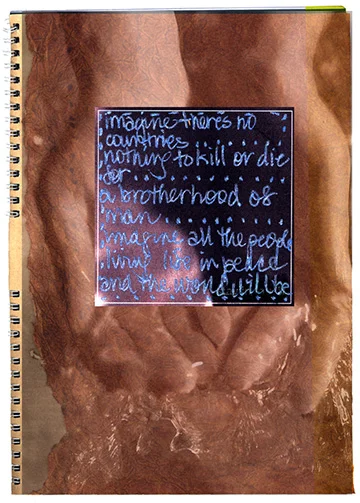 imagine theres no
countries
nothing to kill or die
for
a brotherhood of
man
imagine all the people
living life in peace
and the world will be